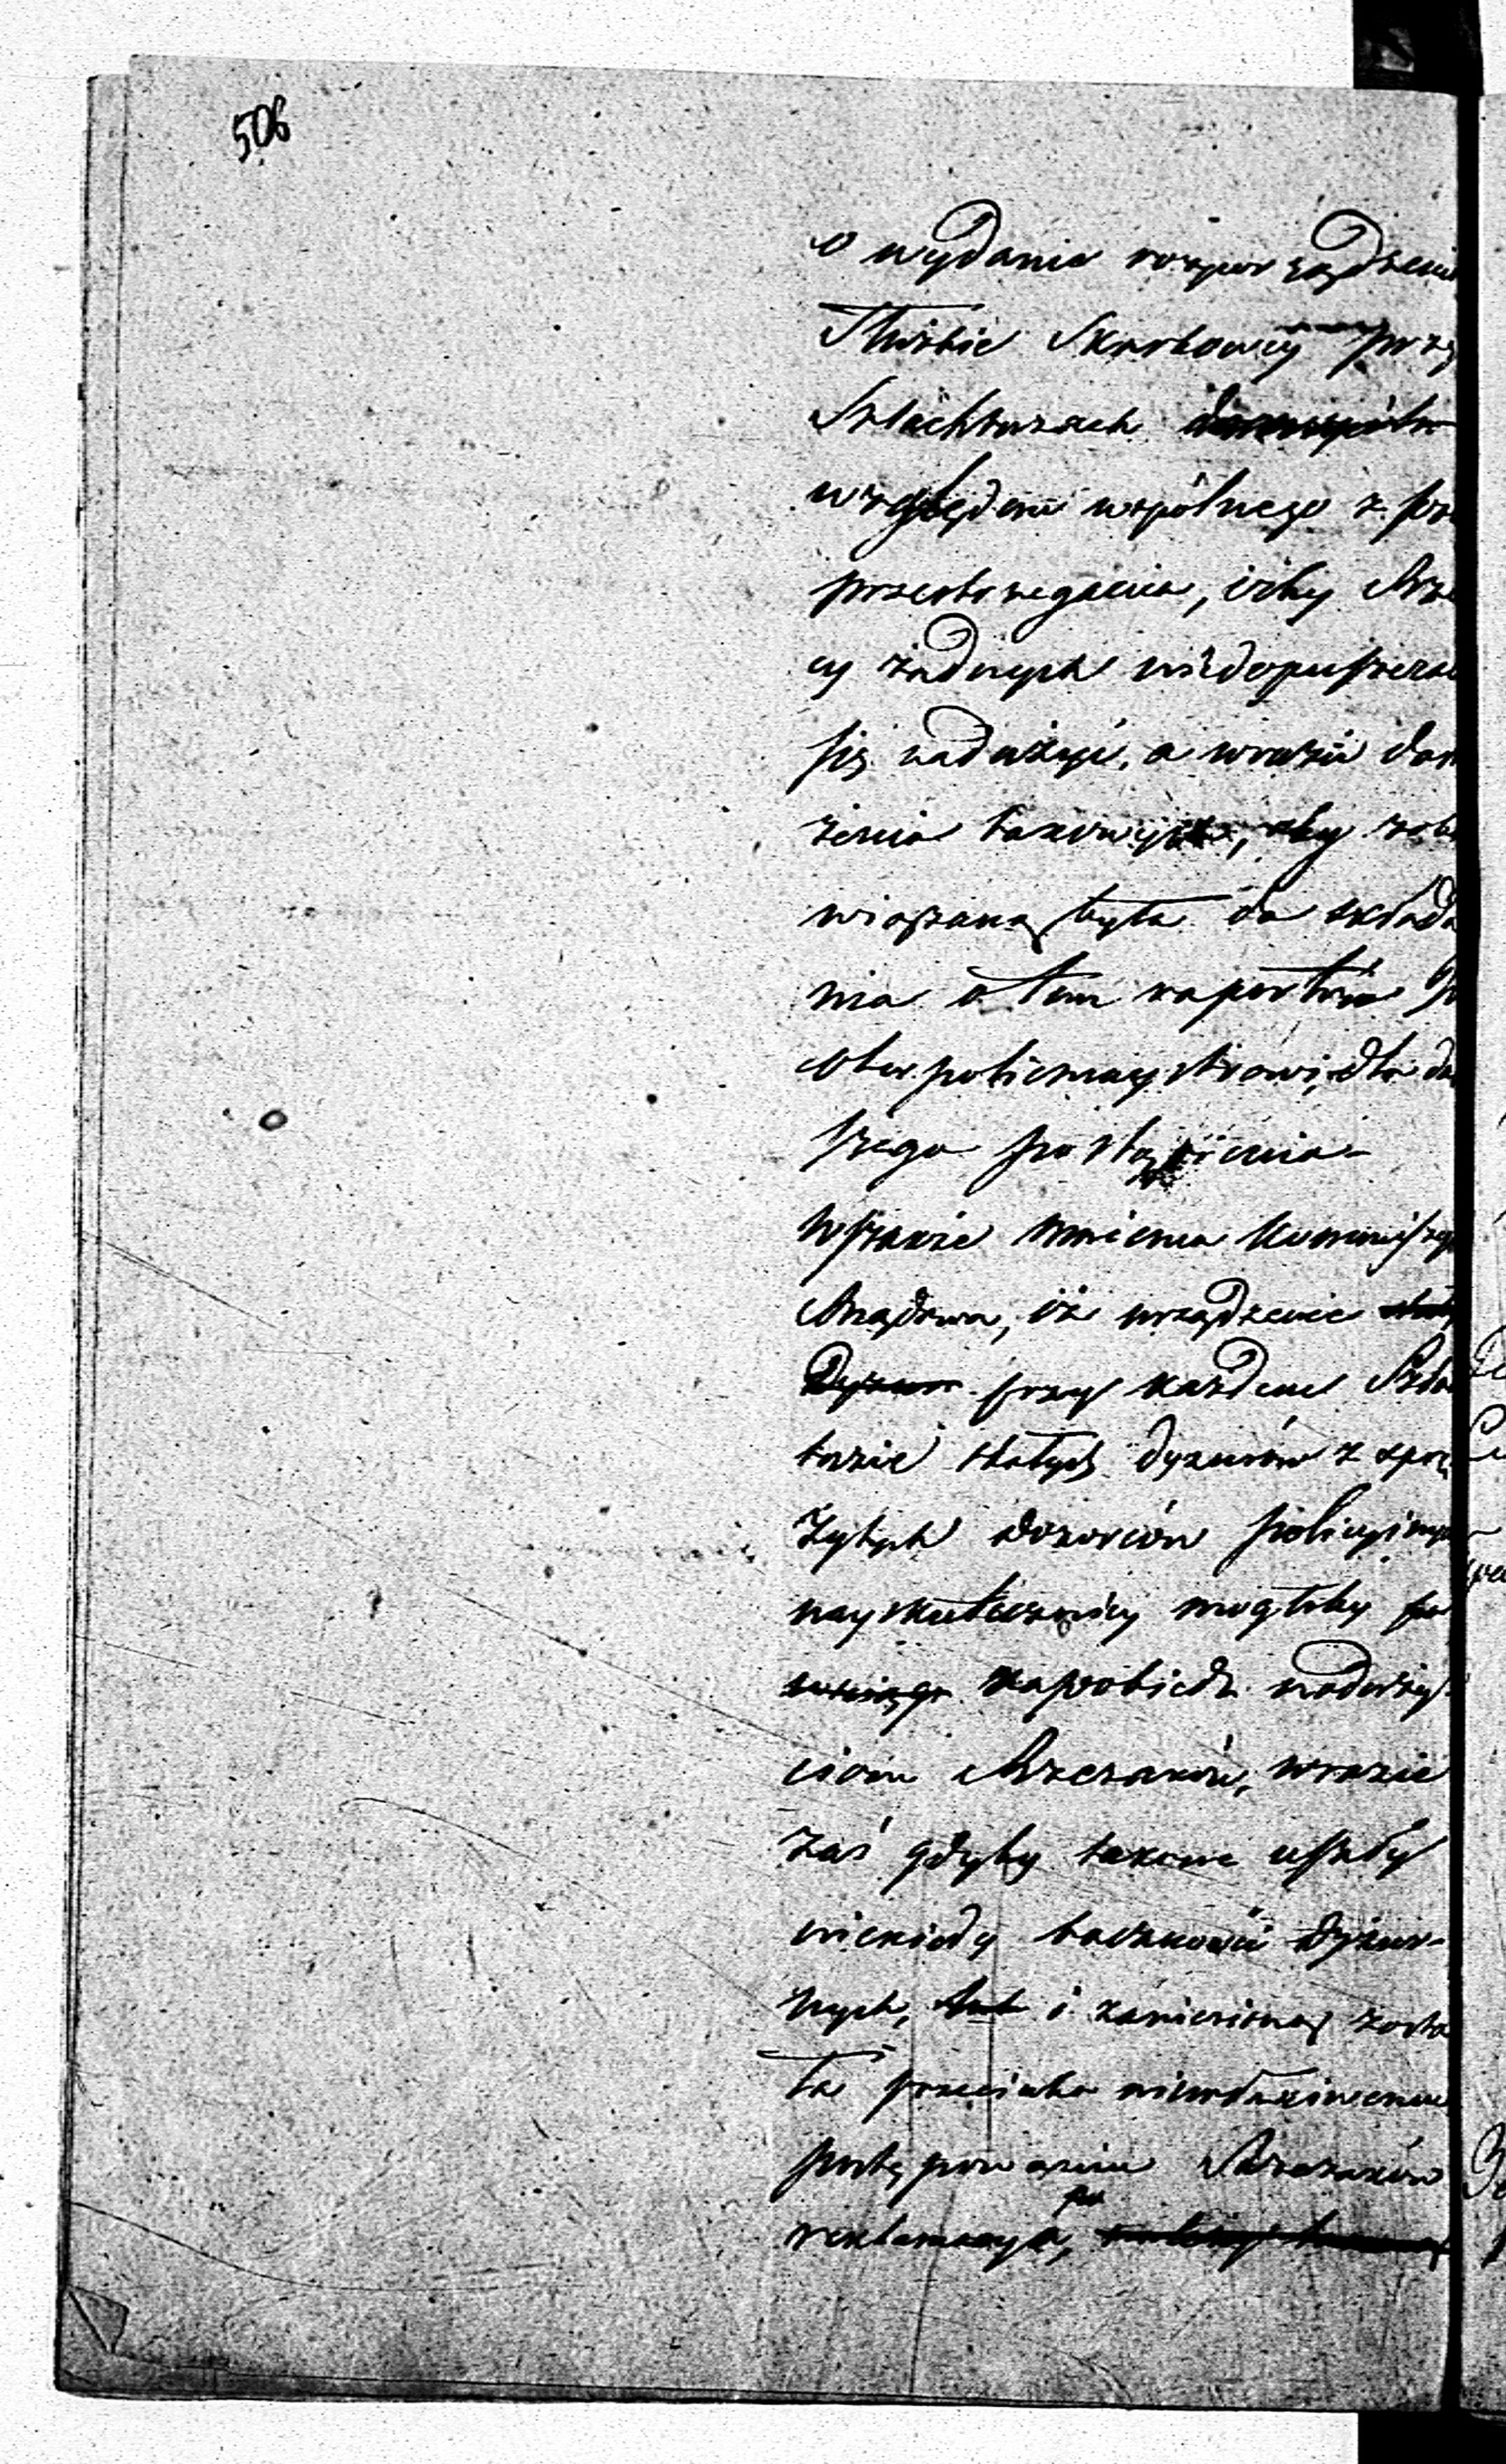 506
o wydanie rozporządzeni
Służbie Skarbowey przy
Szlachtuzach
względem wspólnego z prz
przestrzegania, iżby Rze
cy żadnych niedopuszcza
się nadużyć, a wrazie dos
żenia takowych, aby zobo
wiązaną była do składa
nia o tem raportów P
Oberpolicmaystrowi, dla da
szego postąpienia
Wszakże mniema Kommissya
Rządowa, iż urządzenie
Dyżuru przy każdem Szla
tuzie stałych dyżurów z sprę
żystych dozorców policyjnych
nayskuteczniey mogłoby
zapobiedz naduży-
ciom Rzezaków, wrazie
zaś gdyby takowe uszły
niekiedy baczności dyżur-
nych, i zaniesioną zosta
ła przeciwko niewłaściwemu
postępowaniu Rzezaków
reklamacya,